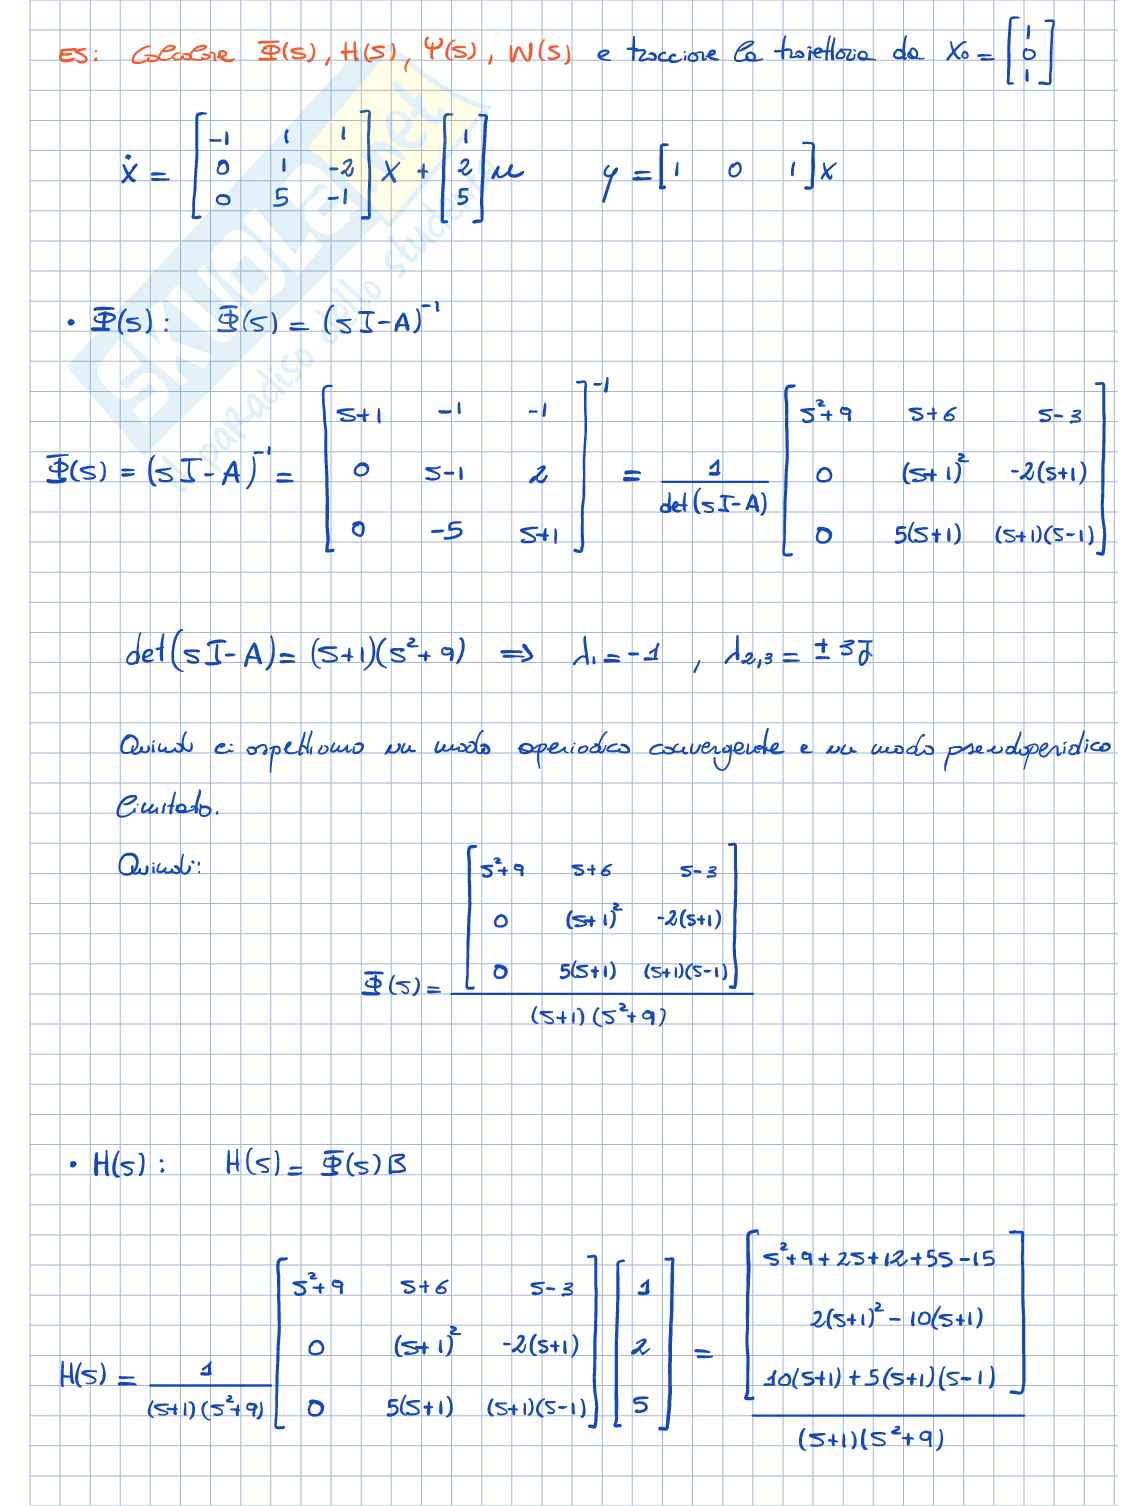 ES: Calcolare Φ(s), H(s), Ψ(s), W(s) e tracciare la traiettoria da x₀ = [1; 0; 1]
ẋ = [-1 1 1; 0 1 -2; 0 5 -1] x + [1; 2; 5] u    y = [1 0 1] x
• Φ(s): Φ(s) = (sI-A)⁻¹
Φ(s) = (sI-A)⁻¹ = [s+1 -1 -1; 0 s-1 2; 0 -5 s+1]⁻¹ = 1/det(sI-A) [s²+9 s+6 s-3; 0 (s+1)² -2(s+1); 0 5(s+1) (s+1)(s-1)]
det(sI-A) = (s+1)(s²+9) ⇒ λ₁ = -1 , λ₂,₃ = ± 3J
Quindi ci aspettiamo un modo aperiodico convergente e un modo pseudoperidico
limitato.
Quindi:
Φ(s) = [s²+9 s+6 s-3; 0 (s+1)² -2(s+1); 0 5(s+1) (s+1)(s-1)] / (s+1)(s²+9)
• H(s): H(s) = Φ(s)B
H(s) = 1/(s+1)(s²+9) [s²+9 s+6 s-3; 0 (s+1)² -2(s+1); 0 5(s+1) (s+1)(s-1)] [1; 2; 5] = [s²+9+2s+12+5s-15; 2(s+1)²-10(s+1); 10(s+1)+5(s+1)(s-1)] / (s+1)(s²+9)
SKUOLA.net
il paradiso dello studente